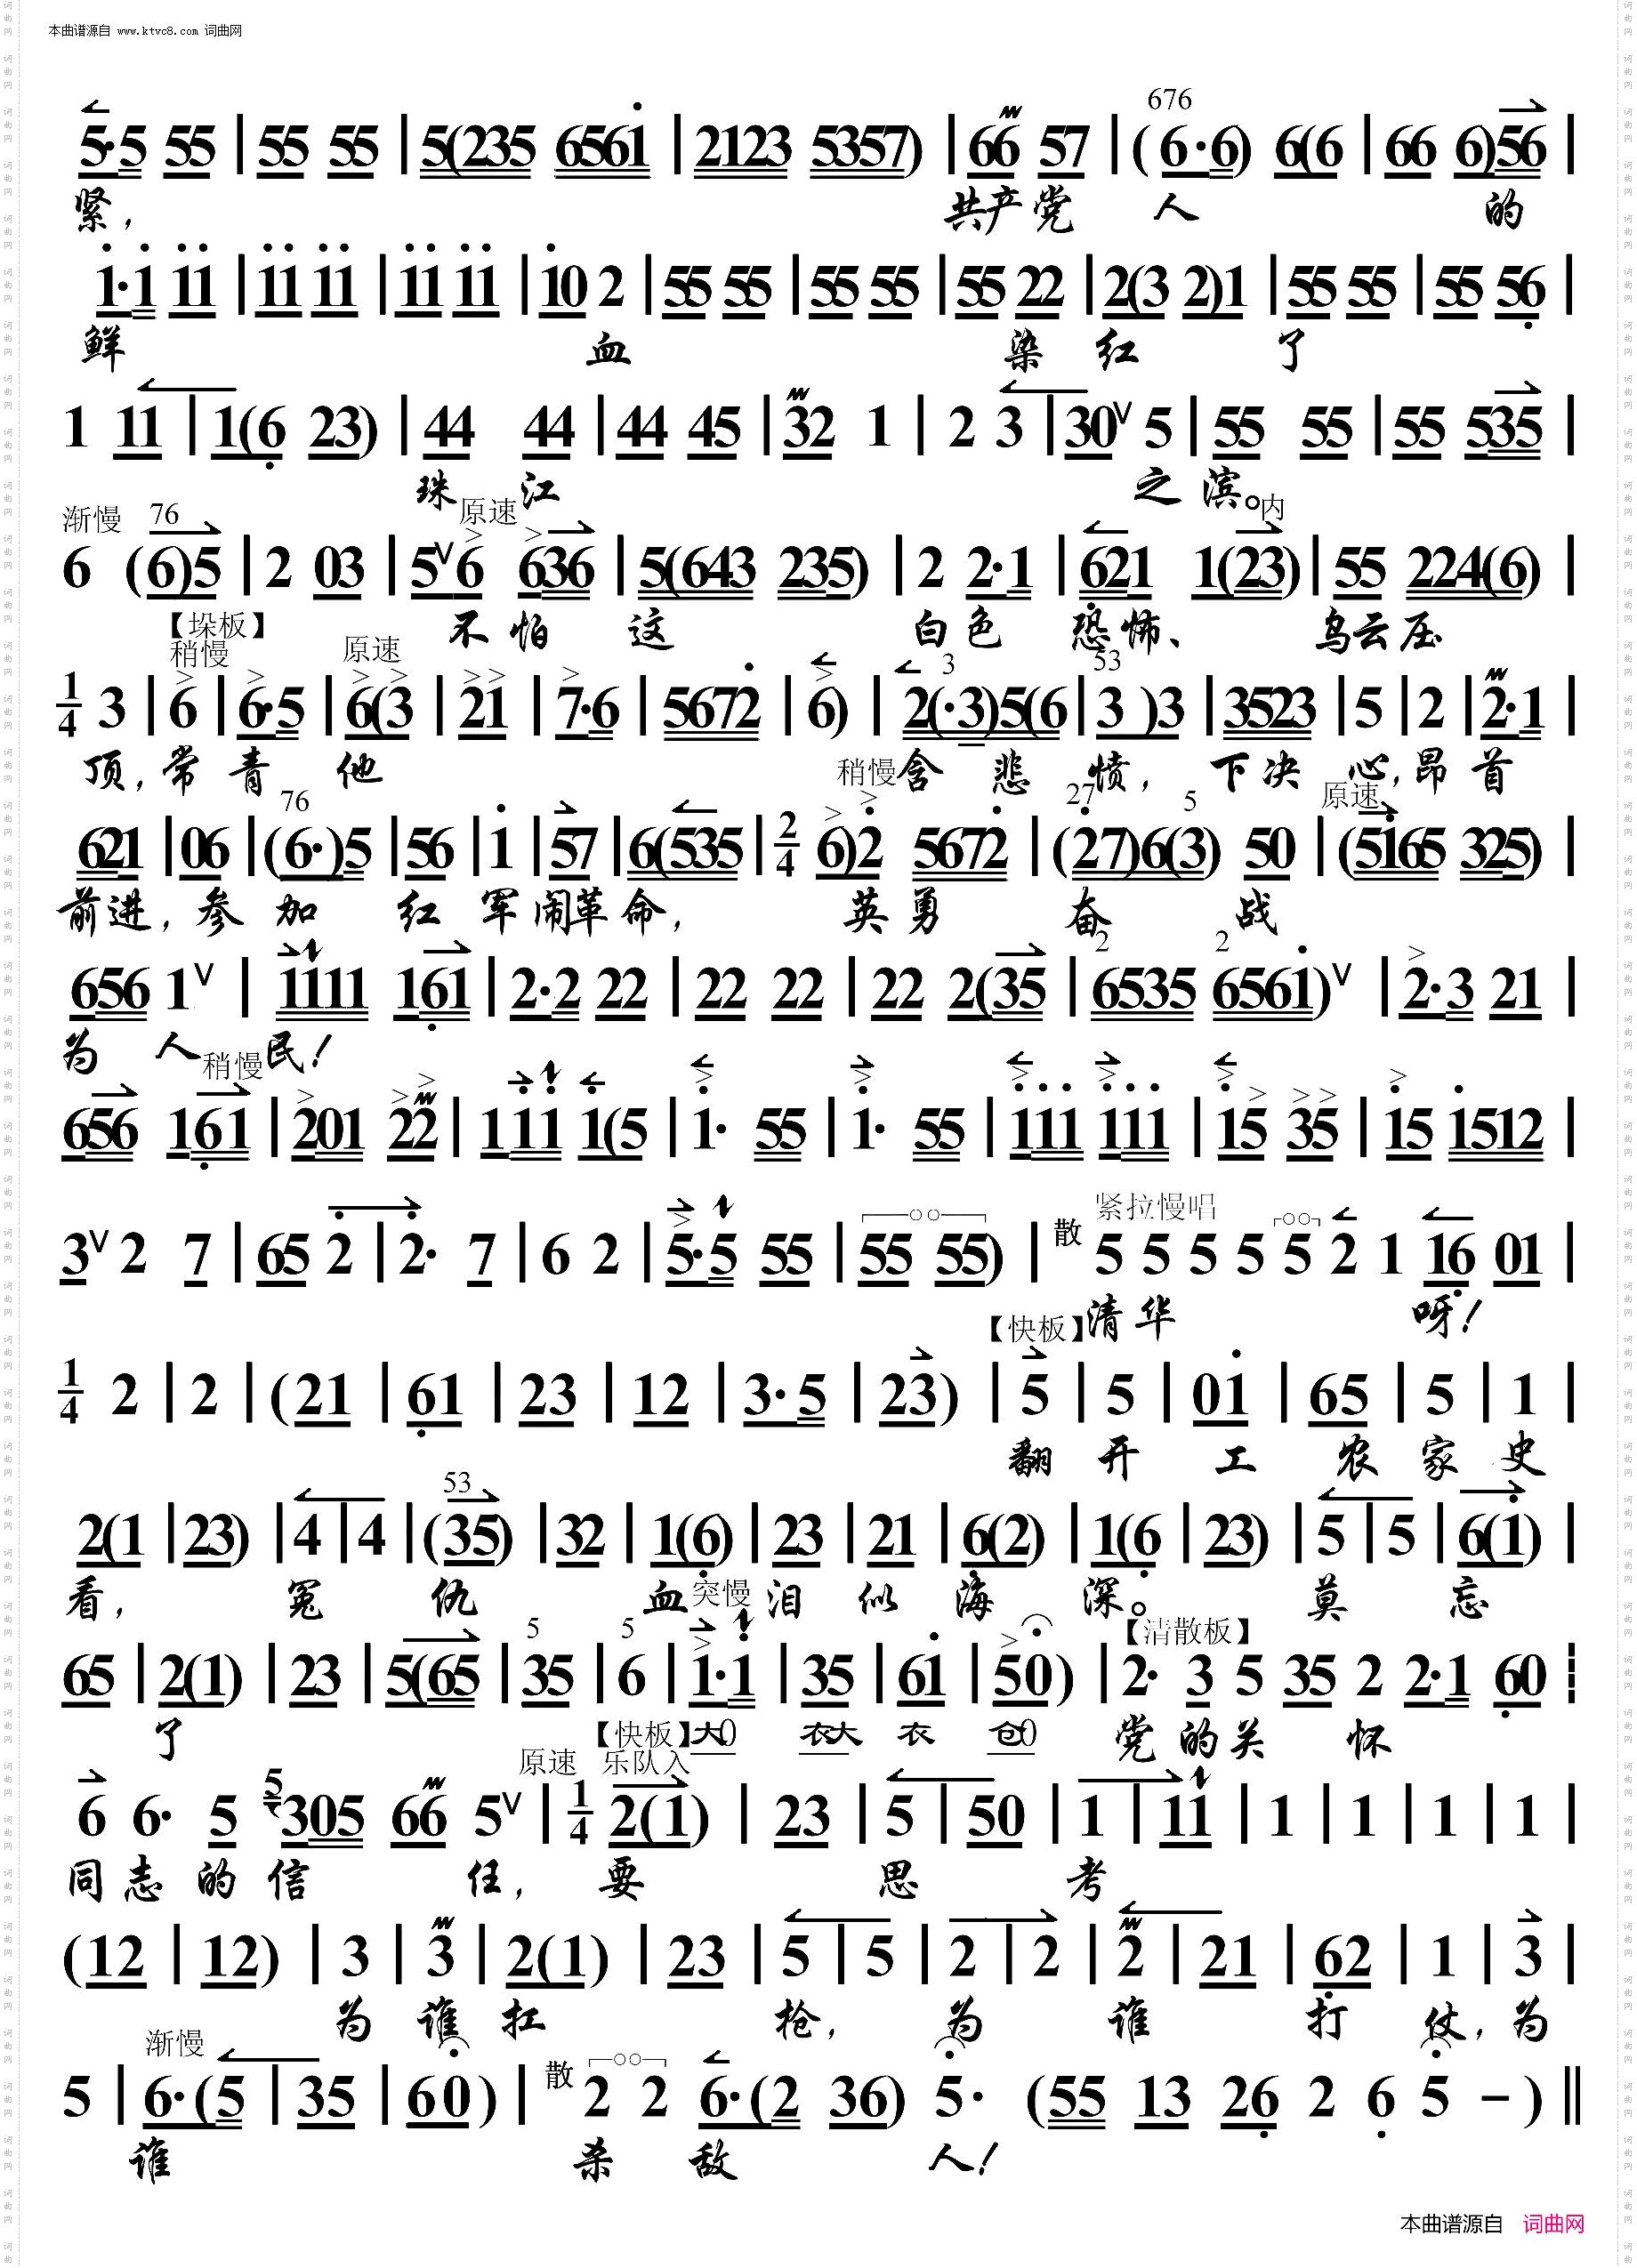 本曲谱源自 www.ktvc8.com 词曲网
676
5·5 55 | 55 55 | 5(235 6561 | 2123 5357) | 66 57 | (6·6) 6(6 | 66 6)56 |
紧， 共产党 人 的
1·1 11 | 11 11 | 11 11 | 10 2 | 55 55 | 55 55 | 55 22 | 2(3 2)1 | 55 55 | 55 56 |
鲜 血 染 红 了
1 11 | 1(6 23) | 44 44 | 44 45 | 32 1 | 2 3 | 30 V 5 | 55 55 | 55 535 |
珠 江 之 滨。
渐慢 76 原速 > > 内
6 (6)5 | 2 03 | 5 V 6 636 | 5(643 235) | 2 2·1 | 621 1(23) | 55 224(6) |
【垛板】 不 怕 这 白 色 恐 怖、 乌云压
稍慢 原速 3 53
1/4 3 | 6 | 6·5 | 6(3 | 21 | 7·6 | 5672 | 6) | 2(·3)5(6 | 3 )3 | 3523 | 5 | 2 | 2·1 |
顶，常 青 他 稍慢 含 悲 愤， 下 决 心，昂 首
76 27 5 原速
621 | 06 | (6·)5 | 56 | 1 | 57 | 6(535 | 2/4 6)2 5672 | (27)6(3) 50 | (5165 325) |
前进，参 加 红 军 闹革 命， 英 勇 奋 战
2 2
656 1 V | 1111 161 | 2·2 22 | 22 22 | 22 2(35 | 6535 6561) V | 2·3 21 |
为 人 稍慢 民！
656 161 | 201 22 | 111 1(5 | 1· 55 | 1· 55 | 111 111 | 15 35 | 15 1512 |
紧拉慢唱
3 V 2 7 | 65 2 | 2· 7 | 6 2 | 5·5 55 | 55 55) | 散 5 5 5 5 5 2 1 16 01 |
【快板】清 华 呀！
1/4 2 | 2 | (21 | 61 | 23 | 12 | 3·5 | 23) | 5 | 5 | 01 | 65 | 5 | 1 |
翻 开 工 农 家 史
53
2(1 | 23) | 4 | 4 | (35) | 32 | 1(6) | 23 | 21 | 6(2) | 1(6 | 23) | 5 | 5 | 6(1) |
看， 冤 仇 血 突慢 泪 似 海 深。 莫 忘
5 5 【清散板】
65 | 2(1) | 23 | 5(65 | 35 | 6 | 1·1 | 35 | 61 | 50) | 2· 3 5 35 2 2·1 60
了 【快板】大0 衣大 衣 仓0 党 的 关 怀
原速 乐队入
6 6· 5 5 305 66 5 V | 1/4 2(1) | 23 | 5 | 50 | 1 | 11 | 1 | 1 | 1 | 1 |
同 志 的 信 任， 要 思 考
(12 | 12) | 3 | 3 | 2(1) | 23 | 5 | 5 | 2 | 2 | 2 | 21 | 62 | 1 | 3 |
为 谁 扛 枪， 为 谁 打 仗，为
渐慢
5 | 6·(5 | 35 | 60) | 散 2 2 6·(2 36) 5· (55 13 26 2 6 5 -) ||
谁 杀 敌 人！
本曲谱源自 词曲网